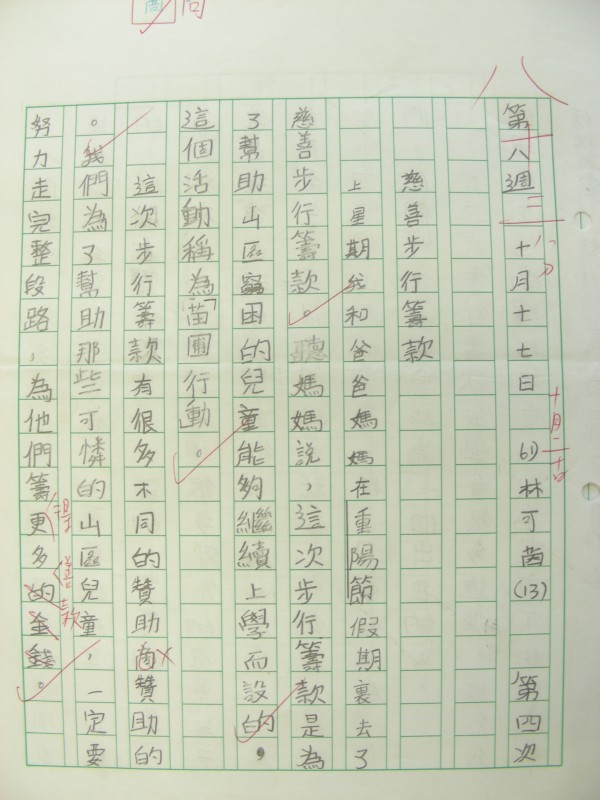 第十八週二 十月十七日 6J 林可茵(13) 第四次
十月二十日
慈善步行籌款
上星期我和爸爸媽媽在重陽節假期裏去了
慈善步行籌款。聽媽媽說，這次步行籌款是為
了幫助山區窮困的兒童能夠繼續上學而設的，
這個活動稱為「苗圃行動」。
這次步行籌款有很多不同的贊助商贊助的
。我們為了幫助那些可憐的山區兒童，一定要
努力走完整段路，為他們籌更多的金錢。
得
善款